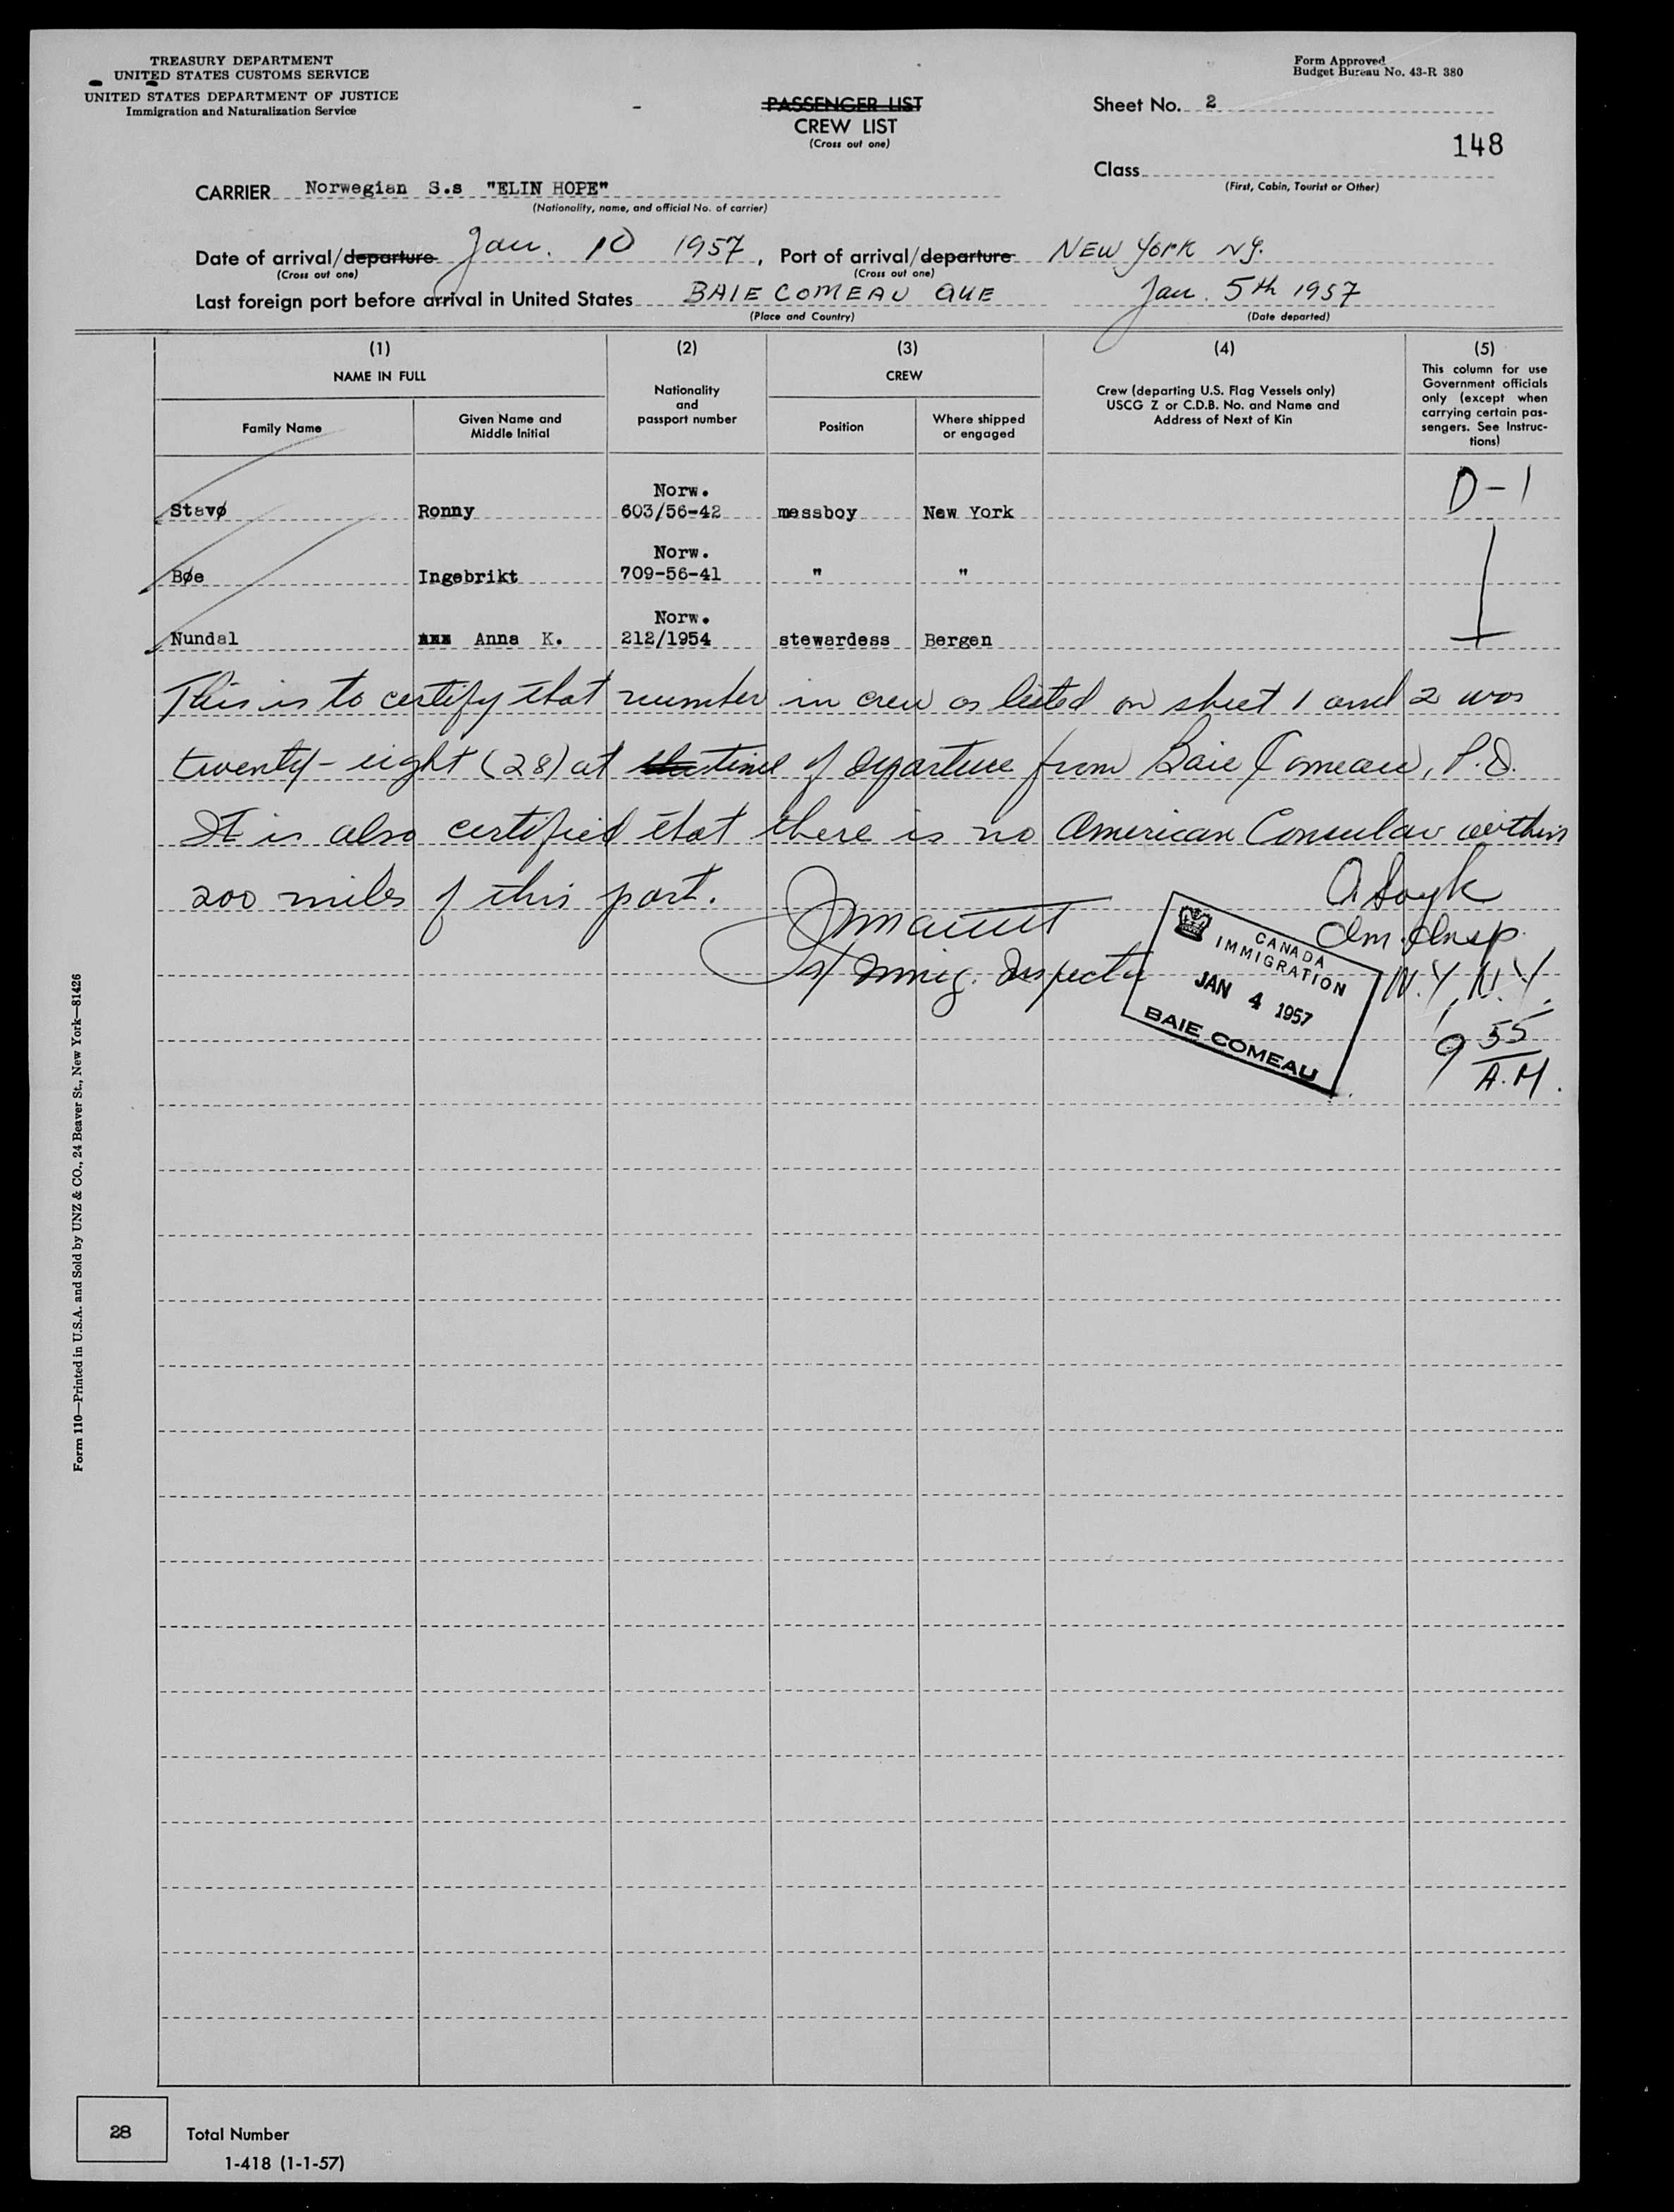 TREASURY DEPARTMENT
UNITED STATES CUSTOMS SERVICE
UNITED STATES DEPARTMENT OF JUSTICE
Immigration and Naturalization Service
PASSENGER LIST
CREW LIST
(Cross out one)
Form Approved
Budget Bureau No. 43-R 380
Sheet No. 2
148
Class
(First, Cabin, Tourist or Other)
CARRIER Norwegian S.s "ELIN HOPE"
(Nationality, name, and official No. of carrier)
Date of arrival/departure Jan. 10 1957, Port of arrival/departure NEW YORK NY.
(Cross out one) (Cross out one)
Last foreign port before arrival in United States BAIE COMEAU QUE Jan. 5th 1957
(Place and Country) (Date departed)
(1) (2) (3) (4) (5)
NAME IN FULL
Family Name
Given Name and
Middle Initial
Nationality
and
passport number
CREW
Position
Where shipped
or engaged
Crew (departing U.S. Flag Vessels only)
USCG Z or C.D.B. No. and Name and
Address of Next of Kin
This column for use
Government officials
only (except when
carrying certain pas-
sengers. See Instruc-
tions)
Norw. D-1
Stavø Ronny 603/56-42 messboy New York
Norw.
Bøe Ingebrikt 709-56-41 " "
Norw.
Nundal Anna K. 212/1954 stewardess Bergen
This is to certify that number in crew as listed on sheet 1 and 2 was
twenty-eight (28) at time of departure from Baie Comeau, P.Q.
It is also certified that there is no American Consular within
200 miles of this port.
Immig. Inspector
CANADA
IMMIGRATION
JAN 4 1957
BAIE COMEAU
Im. Insp.
N.Y. N.Y.
9 55
A.M.
Form 110—Printed in U.S.A. and Sold by UNZ & CO., 24 Beaver St., New York—81426
28 Total Number
1-418 (1-1-57)